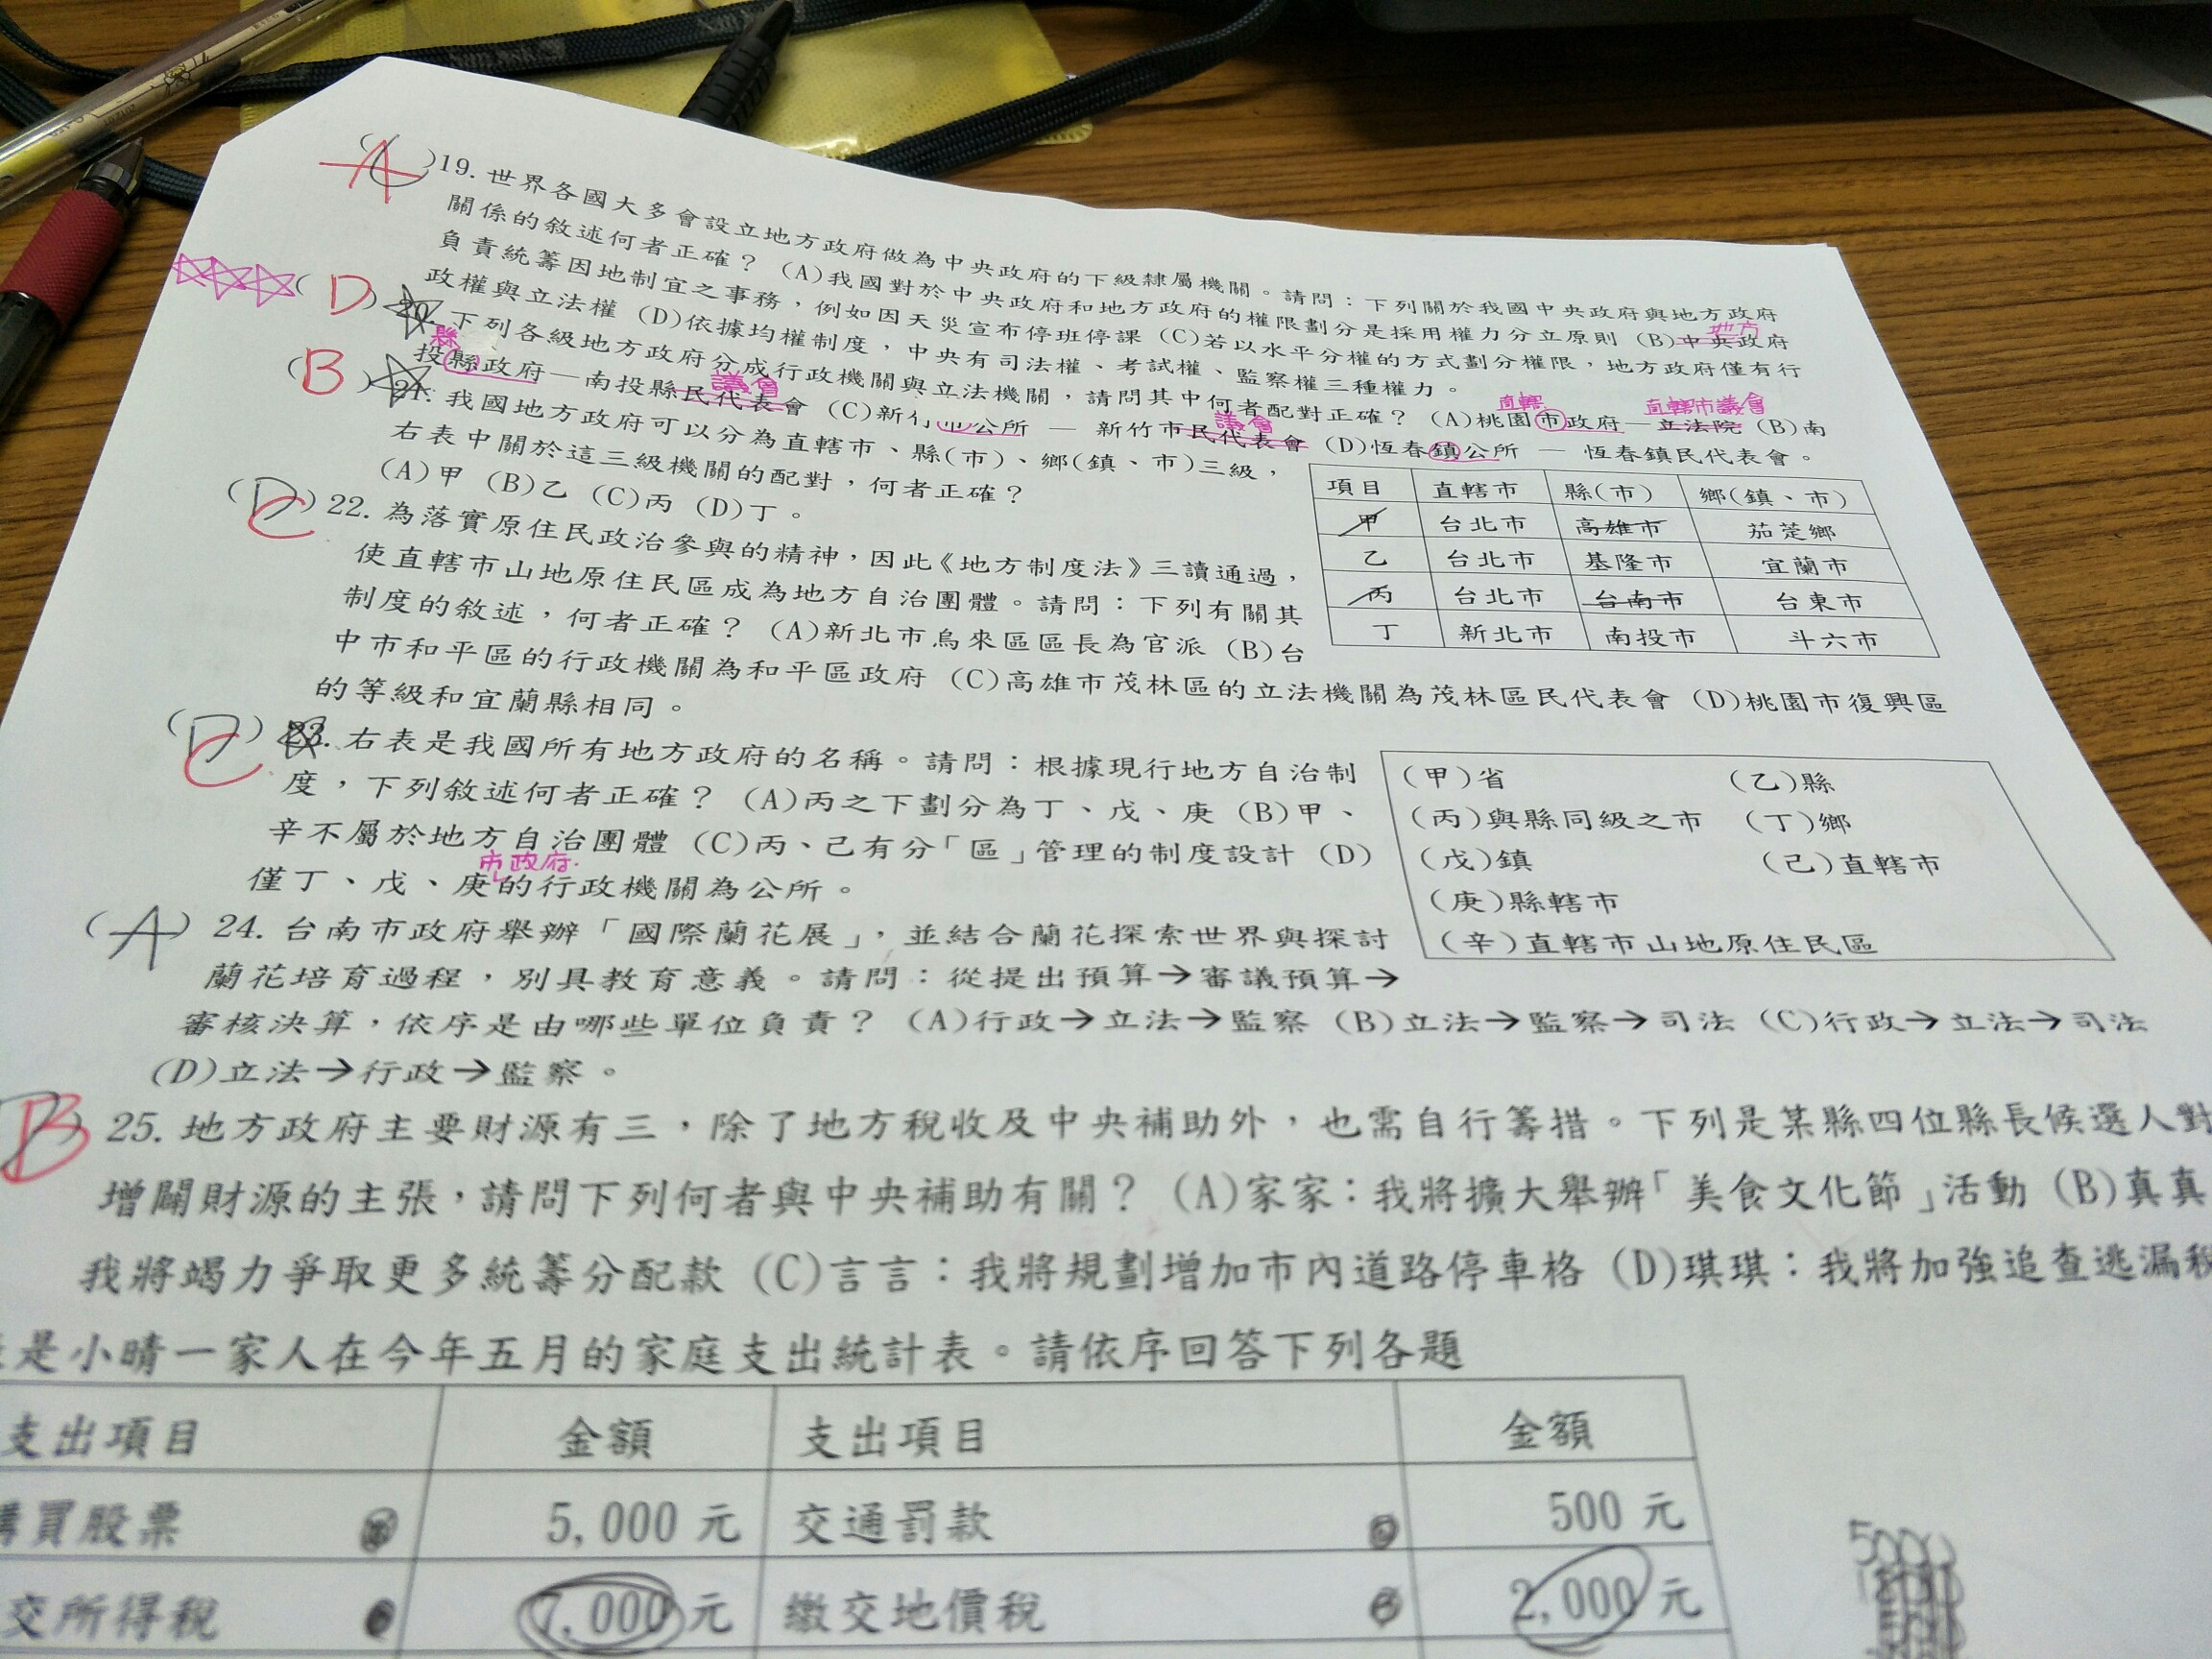 (A)19. 世界各國大多會設立地方政府做為中央政府的下級隸屬機關。請問：下列關於我國中央政府與地方政府
關係的敘述何者正確？ (A)我國對於中央政府和地方政府的權限劃分是採用權力分立原則 (B)中央政府
地方
負責統籌因地制宜之事務，例如因天災宣布停班停課 (C)若以水平分權的方式劃分權限，地方政府僅有行
政權與立法權 (D)依據均權制度，中央有司法權、考試權、監察權三種權力。
(D)20. 下列各級地方政府分成行政機關與立法機關，請問其中何者配對正確？ (A)桃園市政府—立法院 (B)南
縣
直轄
直轄市議會
投縣政府—南投縣民代表會 (C)新竹市公所 — 新竹市民代表會 (D)恆春鎮公所 — 恆春鎮民代表會。
議會
議會
(B)21. 我國地方政府可以分為直轄市、縣(市)、鄉(鎮、市)三級，
右表中關於這三級機關的配對，何者正確？
(A)甲 (B)乙 (C)丙 (D)丁。
項目 直轄市 縣(市) 鄉(鎮、市)
甲 台北市 高雄市 茄萣鄉
乙 台北市 基隆市 宜蘭市
丙 台北市 台南市 台東市
丁 新北市 南投市 斗六市
(C)22. 為落實原住民政治參與的精神，因此《地方制度法》三讀通過，
使直轄市山地原住民區成為地方自治團體。請問：下列有關其
制度的敘述，何者正確？ (A)新北市烏來區區長為官派 (B)台
中市和平區的行政機關為和平區政府 (C)高雄市茂林區的立法機關為茂林區民代表會 (D)桃園市復興區
的等級和宜蘭縣相同。
(C)23. 右表是我國所有地方政府的名稱。請問：根據現行地方自治制
度，下列敘述何者正確？ (A)丙之下劃分為丁、戊、庚 (B)甲、
辛不屬於地方自治團體 (C)丙、己有分「區」管理的制度設計 (D)
市政府
僅丁、戊、庚的行政機關為公所。
(甲)省 (乙)縣
(丙)與縣同級之市 (丁)鄉
(戊)鎮 (己)直轄市
(庚)縣轄市
(辛)直轄市山地原住民區
(A) 24. 台南市政府舉辦「國際蘭花展」，並結合蘭花探索世界與探討
蘭花培育過程，別具教育意義。請問：從提出預算→審議預算→
審核決算，依序是由哪些單位負責？ (A)行政→立法→監察 (B)立法→監察→司法 (C)行政→立法→司法
(D)立法→行政→監察。
B) 25. 地方政府主要財源有三，除了地方稅收及中央補助外，也需自行籌措。下列是某縣四位縣長候選人對
增闢財源的主張，請問下列何者與中央補助有關？ (A)家家：我將擴大舉辦「美食文化節」活動 (B)真真
我將竭力爭取更多統籌分配款 (C)言言：我將規劃增加市內道路停車格 (D)琪琪：我將加強追查逃漏稅
是小晴一家人在今年五月的家庭支出統計表。請依序回答下列各題
支出項目 金額 支出項目 金額
購買股票 5,000元 交通罰款 500元
交所得稅 7,000元 繳交地價稅 2,000元